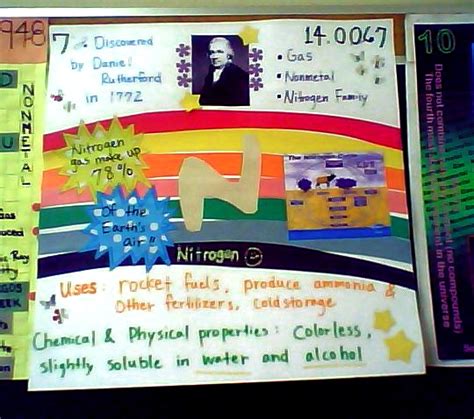 948
7
Discovered
by Daniel
Rutherford
in 1772
14.0067
• Gas
• Nonmetal
• Nitrogen Family
Nitrogen
gas make up
78%
Of the
Earth's
air"
N
Nitrogen
Uses: rocket fuels, produce ammonia &
Other fertilizers, cold storage
Chemical & Physical properties: Colorless,
slightly soluble in water and alcohol
NONMETAL
10
Does not combine
The fourth most
(no compounds)
in the universe